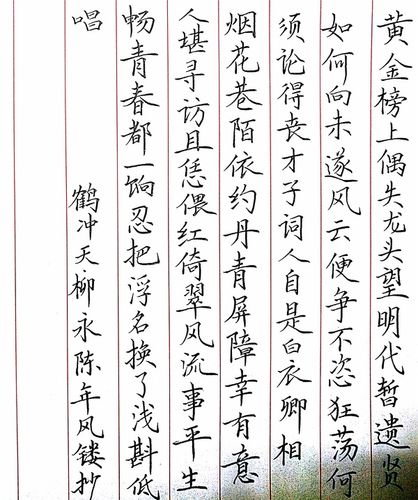 黄金榜上偶失龙头望明代暂遗贤
如何向未遂风云便争不恣狂荡何
须论得丧才子词人自是白衣卿相
烟花巷陌依约丹青屏障幸有意
人堪寻访且恁偎红倚翠风流事平生
畅青春都一饷忍把浮名换了浅斟低
唱 鹤冲天柳永陈年风镂抄